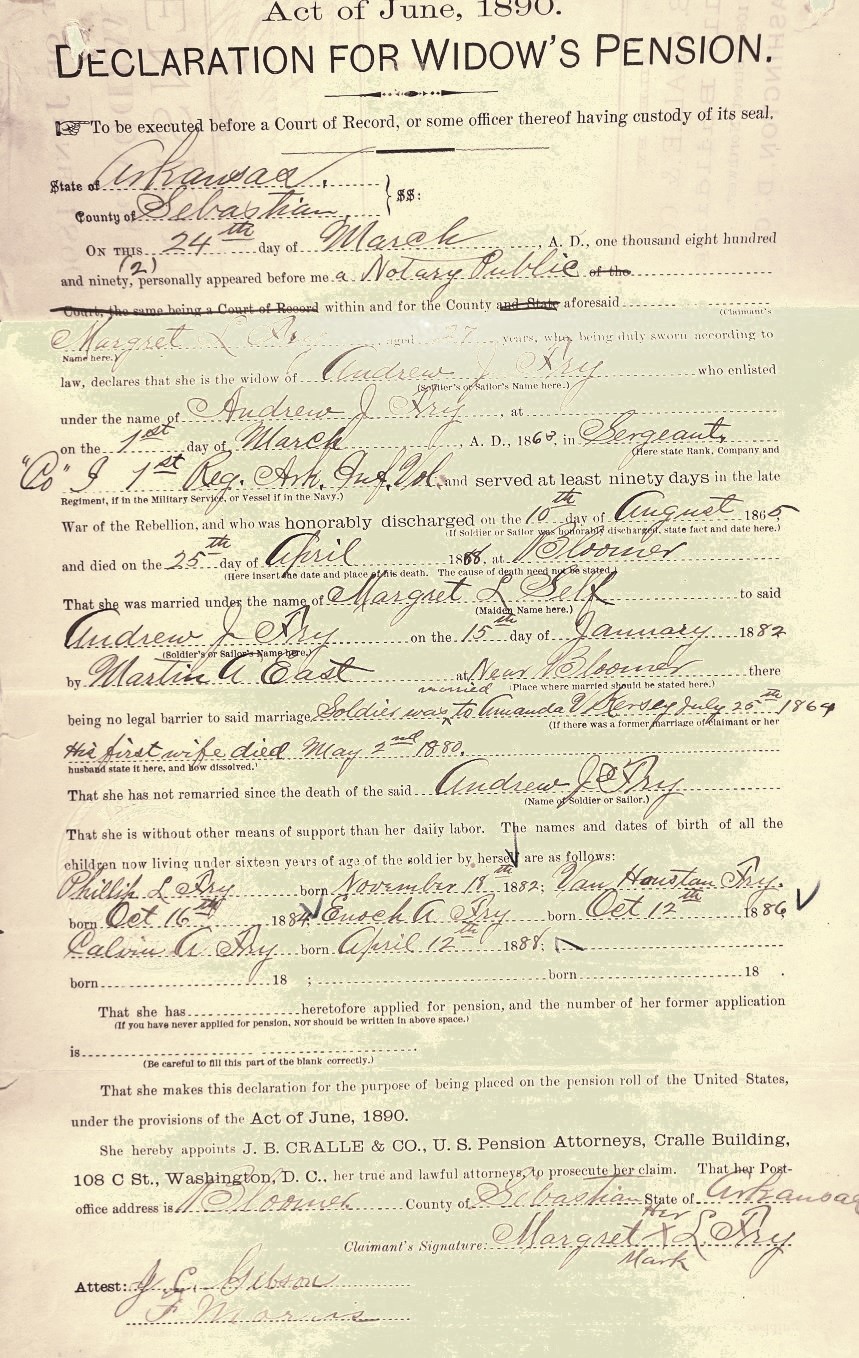 Act of June, 1890.
DECLARATION FOR WIDOW'S PENSION.
To be executed before a Court of Record, or some officer thereof having custody of its seal.
State of Arkansas,
County of Sebastian, } SS:
ON THIS 24th day of March, A. D., one thousand eight hundred
and ninety (2), personally appeared before me a Notary Public of the
Court, the same being a Court of Record within and for the County and State aforesaid
(Claimant's
Margret L Fry aged 27 years, who, being duly sworn according to
Name here.)
law, declares that she is the widow of Andrew J Fry who enlisted
(Soldier's or Sailor's Name here.)
under the name of Andrew J Fry, at
on the 1st day of March, A. D., 1863, in Sergeant,
(Here state Rank, Company and
"Co" I 1st Reg. Ark. Inf. Vol. and served at least ninety days in the late
Regiment, if in the Military Service, or Vessel if in the Navy.)
War of the Rebellion, and who was honorably discharged on the 10th day of August 1865,
(If Soldier or Sailor was honorably discharged, state fact and date here.)
and died on the 25th day of April 1888, at Bloomer
(Here insert the date and place of his death. The cause of death need not be stated.)
That she was married under the name of Margret L Self to said
(Maiden Name here.)
Andrew J Fry on the 15th day of January 1882
(Soldier's or Sailor's Name here.)
by Martin A East at Near Bloomer there
(Place where married should be stated here.)
married
being no legal barrier to said marriage. Soldier was to Amanda V Kersey July 25th 1864
(If there was a former marriage of claimant or her
His first wife died May 2nd 1880.
husband state it here, and how dissolved.)
That she has not remarried since the death of the said Andrew J Fry
(Name of Soldier or Sailor.)
That she is without other means of support than her daily labor. The names and dates of birth of all the
children now living under sixteen years of age of the soldier by herself are as follows:
Phillip L Fry born November 18th 1882; Van Houston Fry.
born Oct 16th 1884, Enoch A Fry born Oct 12th 1886,
Calvin A Fry born April 12th 1888;
born 18 ; born 18 .
That she has heretofore applied for pension, and the number of her former application
(If you have never applied for pension, NOT should be written in above space.)
is
(Be careful to fill this part of the blank correctly.)
That she makes this declaration for the purpose of being placed on the pension roll of the United States,
under the provisions of the Act of June, 1890.
She hereby appoints J. B. CRALLE & CO., U. S. Pension Attorneys, Cralle Building,
108 C St., Washington, D. C., her true and lawful attorneys, to prosecute her claim. That her Post-
office address is Bloomer County of Sebastian State of Arkansas
Her
Claimant's Signature: Margret X L Fry
Mark
Attest: J. C. Gibson
F Morris